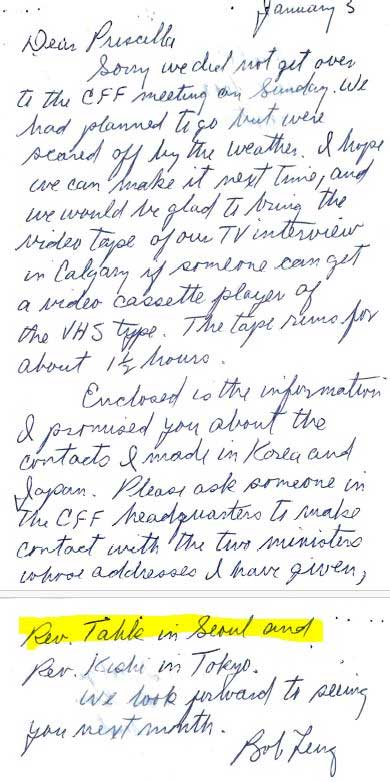 January 3
Dear Priscilla
Sorry we did not get over
to the CFF meeting on Sunday. We
had planned to go but were
scared off by the weather. I hope
we can make it next time, and
we would be glad to bring the
video tape of our TV interview
in Calgary if someone can get
a video cassette player of
the VHS type. The tape runs for
about 1½ hours.
Enclosed is the information
I promised you about the
contacts I made in Korea and
Japan. Please ask someone in
the CFF headquarters to make
contact with the two ministers
whose addresses I have given,
Rev. Tahk in Seoul and
Rev. Kishi in Tokyo.
We look forward to seeing
you next month.
Bob